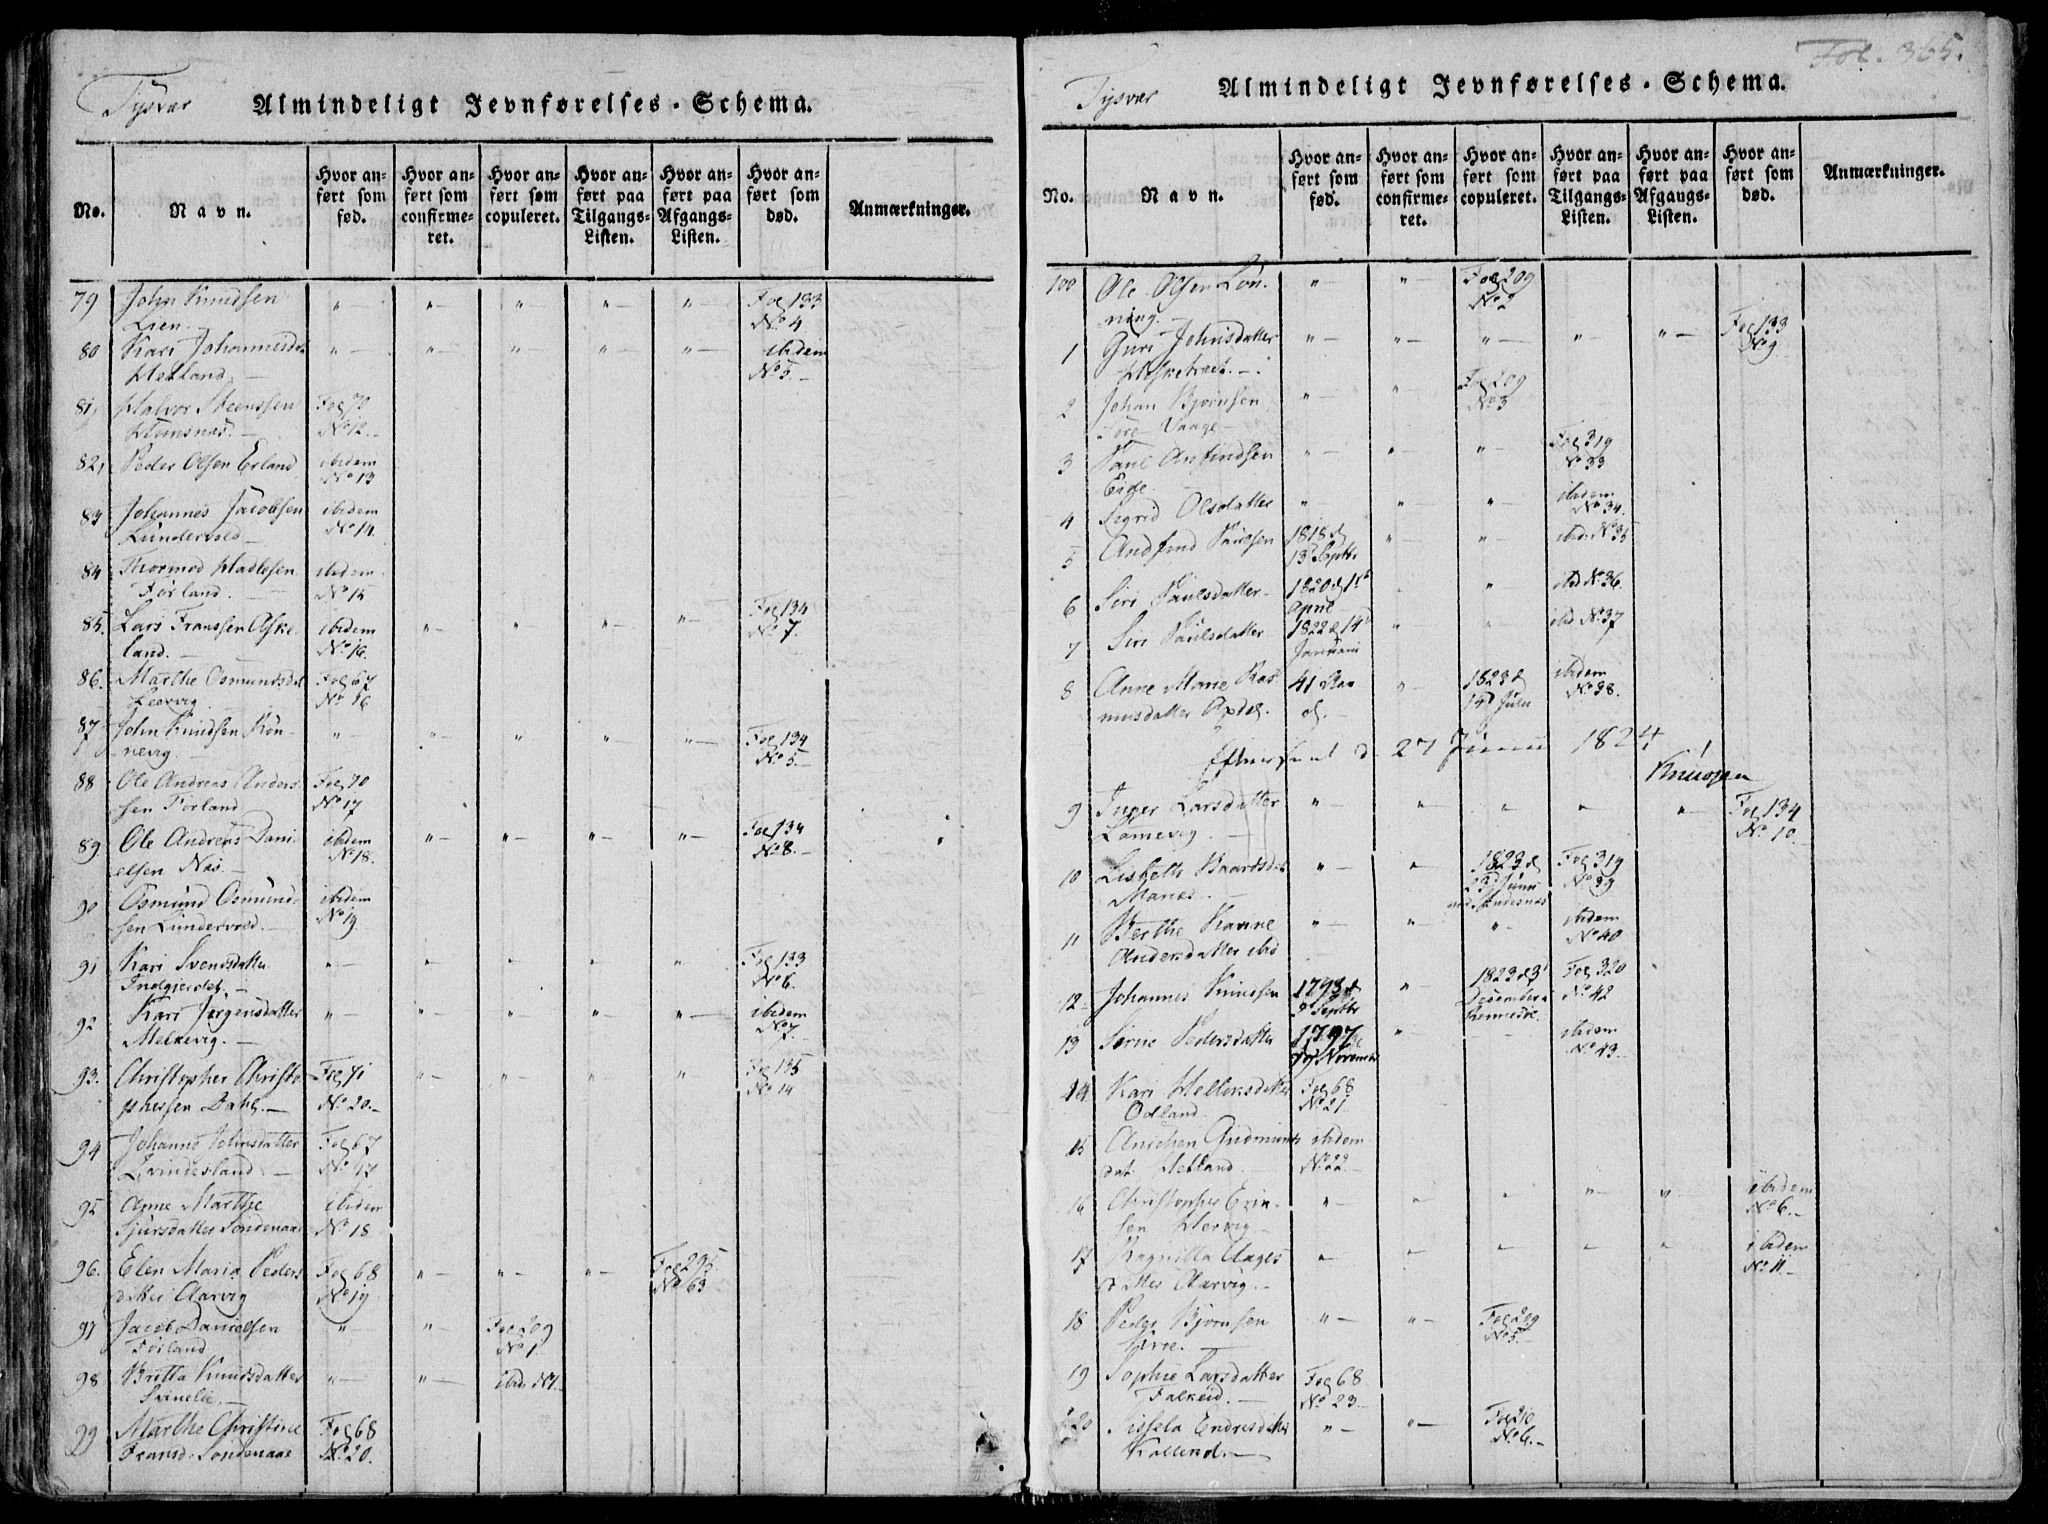 Tysvær
Almindeligt Jevnførelses-Schema.
No.
Navn.
Hvor anført som fød.
Hvor anført som confirmeret.
Hvor anført som copuleret.
Hvor anført paa Tilgangs-Listen.
Hvor anført paa Afgangs-Listen.
Hvor anført som død.
Anmærkninger.
79 John Knudsen " " " " " Fol 133
Lien. No 4
80 Kari Johannesdat " " " " " ibidem
Hetland. No 5.
81, Halvor Steenssen Fol 70
Hemsnæs. No 12.
82, Peder Olsen Erland ibidem
No 13
83 Johannes Jacobsen ibidem
Lundervold No 14.
84 Thormod Hadlesen ibidem
Førland. No 15
85. Lars Franssen Aske- ibidem " " " " Fol 134
land. No 16. No 7.
86. Marthe Osmundsdat Fol 67
Leervig. No 16
87 John Knudsen Røn- " " " " " Fol 134
nevig No 5.
88 Ole Andreas Anders- Fol 70
sen Førland No 17
89. Ole Andreas Dani- ibidem " " " " Fol 134
elsen Næs. No 18. No 8.
90 Osmund Osmund- ibidem
sen Lundervold. No 19
91 Kari Svendsdatter " " " " " Fol 133
Indgjerdet. No 6.
92 Kari Jørgensdatter " " " " " ibidem
Melkevig. No 7.
93. Christopher Christo- Fol 71 " " " " Fol 135
phersen Dahl. No 20. No 14
94 Johanne Johnsdatter Fol 67
Qvindesland. No 17
95 Anne Marthe ibidem
Sjursdatter Søndenaa No 18
96. Elen Maria Peders- Fol 68 " " " Fol 295
datter Aarvig No 19 No 63
97 Jacob Danielsen " " Fol 209
Førland No 1
98 Britta Knudsdatter " " ibid. No 1.
99 Marthe Christine Fol 68
Fransd. Søndenaae No 20.
Fol. 365.
Tysvær
Almindeligt Jevnførelses-Schema.
No.
Navn.
Hvor anført som fød.
Hvor anført som confirmeret.
Hvor anført som copuleret.
Hvor anført paa Tilgangs-Listen.
Hvor anført paa Afgangs-Listen.
Hvor anført som død.
Anmærkninger.
100 Ole Olsen Løn- " " Fol 209
ning. No 2
1 Guri Johnsdatter " " " " " Fol 133
No 9
2 Johan Bjørnsen " " Fol 209
Tore Vaage No 3
3 Paul Anfindsen " " " Fol 319
Eide No 33
4 Segrid Olsdatter " " " ibidem
No 34.
5 Andfind Paulsen 1818 d " " ibid. No 35
13 Septbr
6 Siri Paulsdatter 1820 d 15 " " ibid No 36.
April
7 Siri Paulsdatter 1822 d 14 " " ibid No 37
Januari
8 Anne Marie Ras- 41 Aar " 1823 d ibidem
musdatter Apdal. gl. 14 Juli No 38.
Efterseet d. 27 Junii 1824
9 Inger Larsdatter " " " " " Fol 134
Lamevig. No 10.
10 Lisbeth Baardsdat " " 1823 d Fol 319
Manes. 23 Junii No 39
11 Berthe Karine " " " ibidem
Andersdatter ibid No 40
12 Johannes Knudsen 1793 d " 1823 d 3 Fol 320
9 Septbr Desember No 42
13 Sirine Pedersdatter 1797 " ibidem
Novembr No 43.
14 Kari Hellensdatter Fol 68
Odland. No 21
15 Anichen Gudmunds ibidem
dat. Hetland. No 22
16 Christopher " " " " " ibidem
sen Hervig No 6.
17 Ragnilla Aages- " " " " " ibidem
datter Aarvig. No 11
18 Peder Bjørnsen " " Fol 209
No 5
19 Sophie Larsdatter Fol 68
Falkeid. No 23
120 Sissela Endresdatter " " Fol 210
No 6.